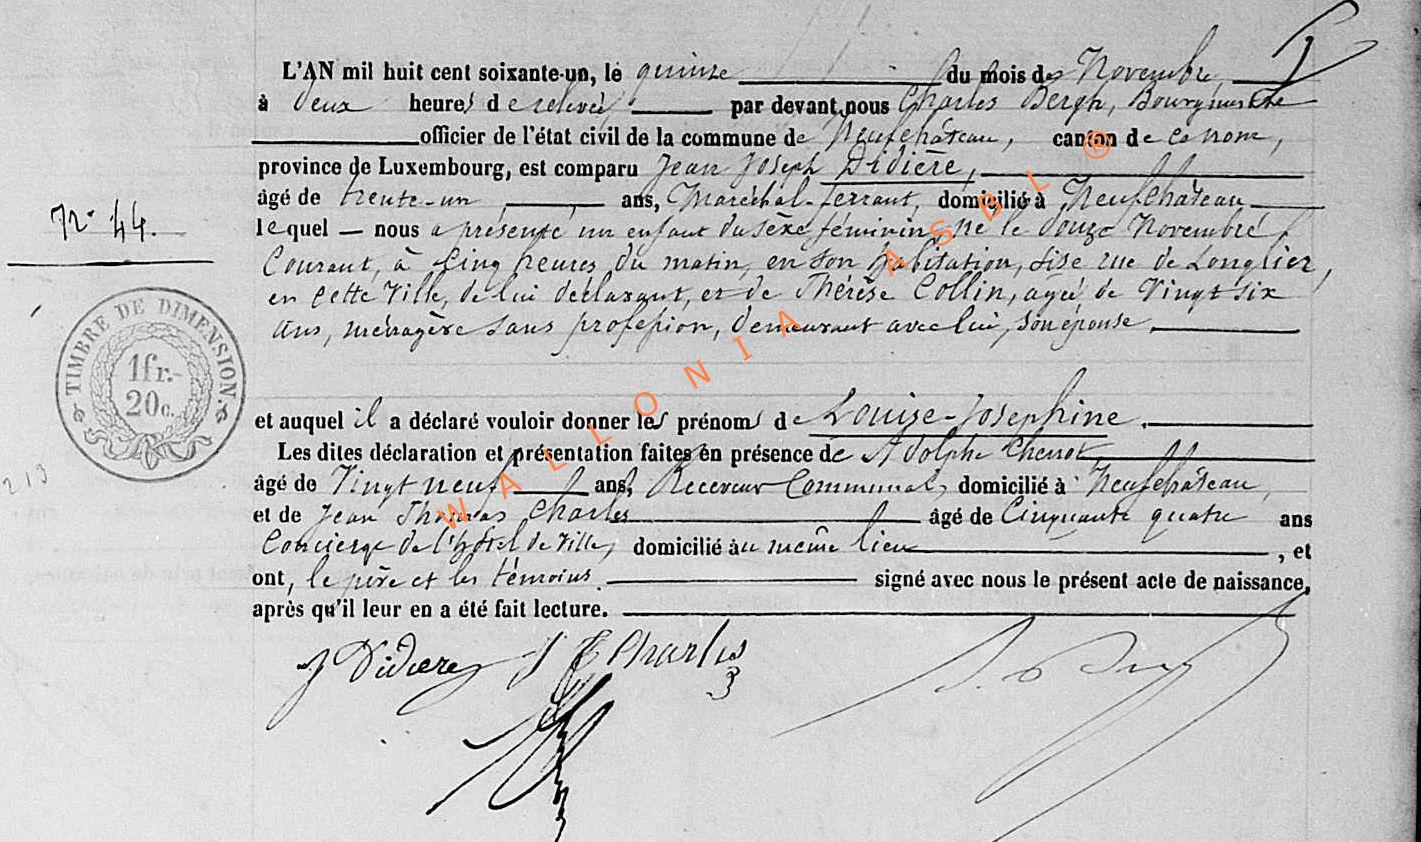 L'AN mil huit cent soixante-un, le quinze du mois de Novembre,
à deux heures de relevée, par devant nous Charles Bergh, Bourgmestre
officier de l'état civil de la commune de Neufchâteau, canton de ce nom,
province de Luxembourg, est comparu Jean Joseph Didière,
âgé de trente-un ans, Maréchal-ferrant, domicilié à Neufchâteau
N° 44.
lequel nous a présenté un enfant du sexe féminin, né le douze Novembre
Courant, à Cinq heures du matin, en son habitation, sise rue de Longlier,
en cette Ville, de lui déclarant, et de Thérèse Collin, agée de Vingt six
ans, ménagère sans profession, demeurant avec lui, son épouse.
TIMBRE DE DIMENSION.
1fr.-
20c.
et auquel il a déclaré vouloir donner les prénoms de Louise-Josephine.
Les dites déclaration et présentation faites en présence de Adolphe
213
âgé de Vingt neuf ans, Receveur Communal, domicilié à Neufchâteau,
et de Jean Thomas Charles âgé de Cinquante quatre ans
Concierge de l'hôtel de Ville, domicilié au même lieu, et
ont, le père et les témoins signé avec nous le présent acte de naissance,
après qu'il leur en a été fait lecture.
J Didiere J T Charlis
WALLONIA ASBL ®